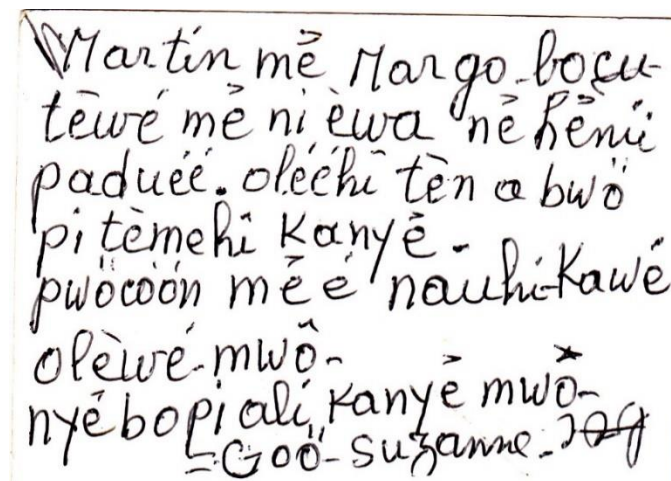 Martin mê Margo-boçu-
tèwé mê ni èwa nê hênú
paduéé. oléchi tèn a bwö
pi tèmehî Kanyê-
pwöcöón mêé náuhi-Kawé
olèwé-mwô-
nyêbopi alí, Kanyê mwô-
=Goö-Suzanne-